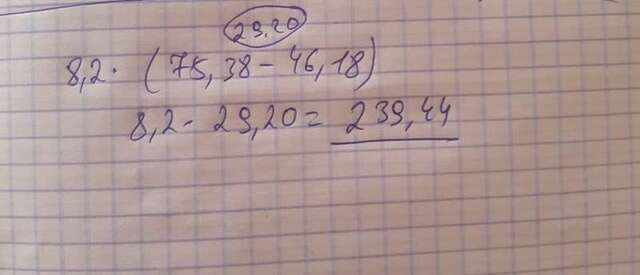 29.20
8,2· (75,38-46,18)
8,2- 29,20= 239,44